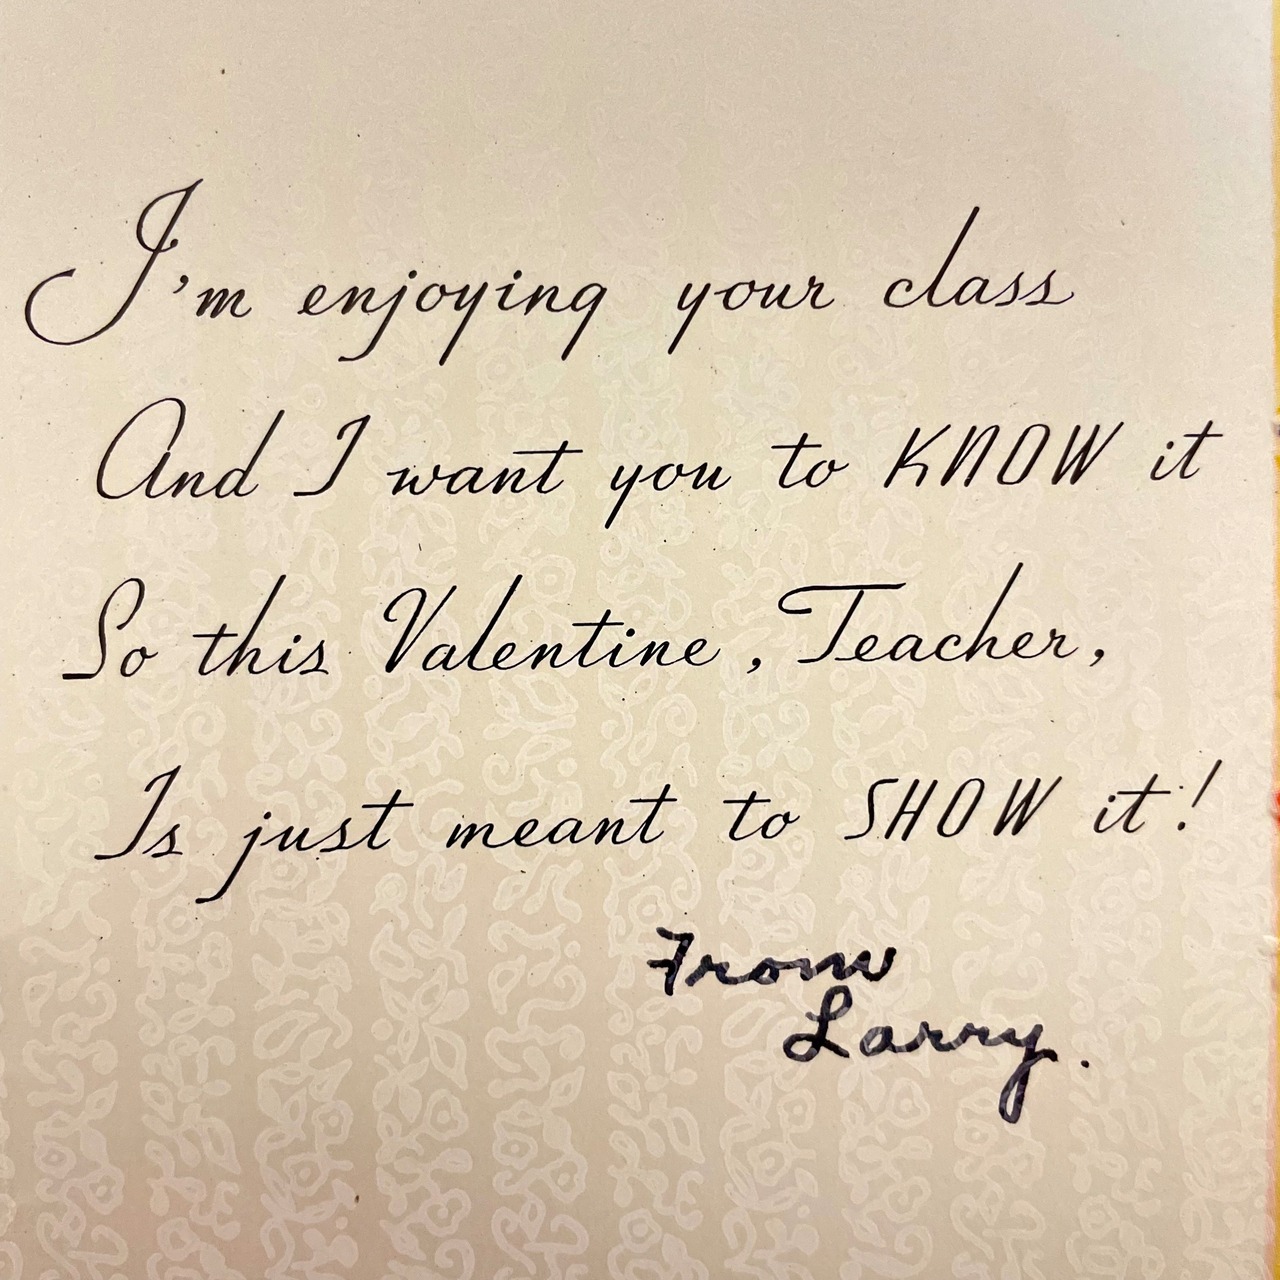 I'm enjoying your class
And I want you to KNOW it
So this Valentine, Teacher,
Is just meant to SHOW it!
From
Larry.